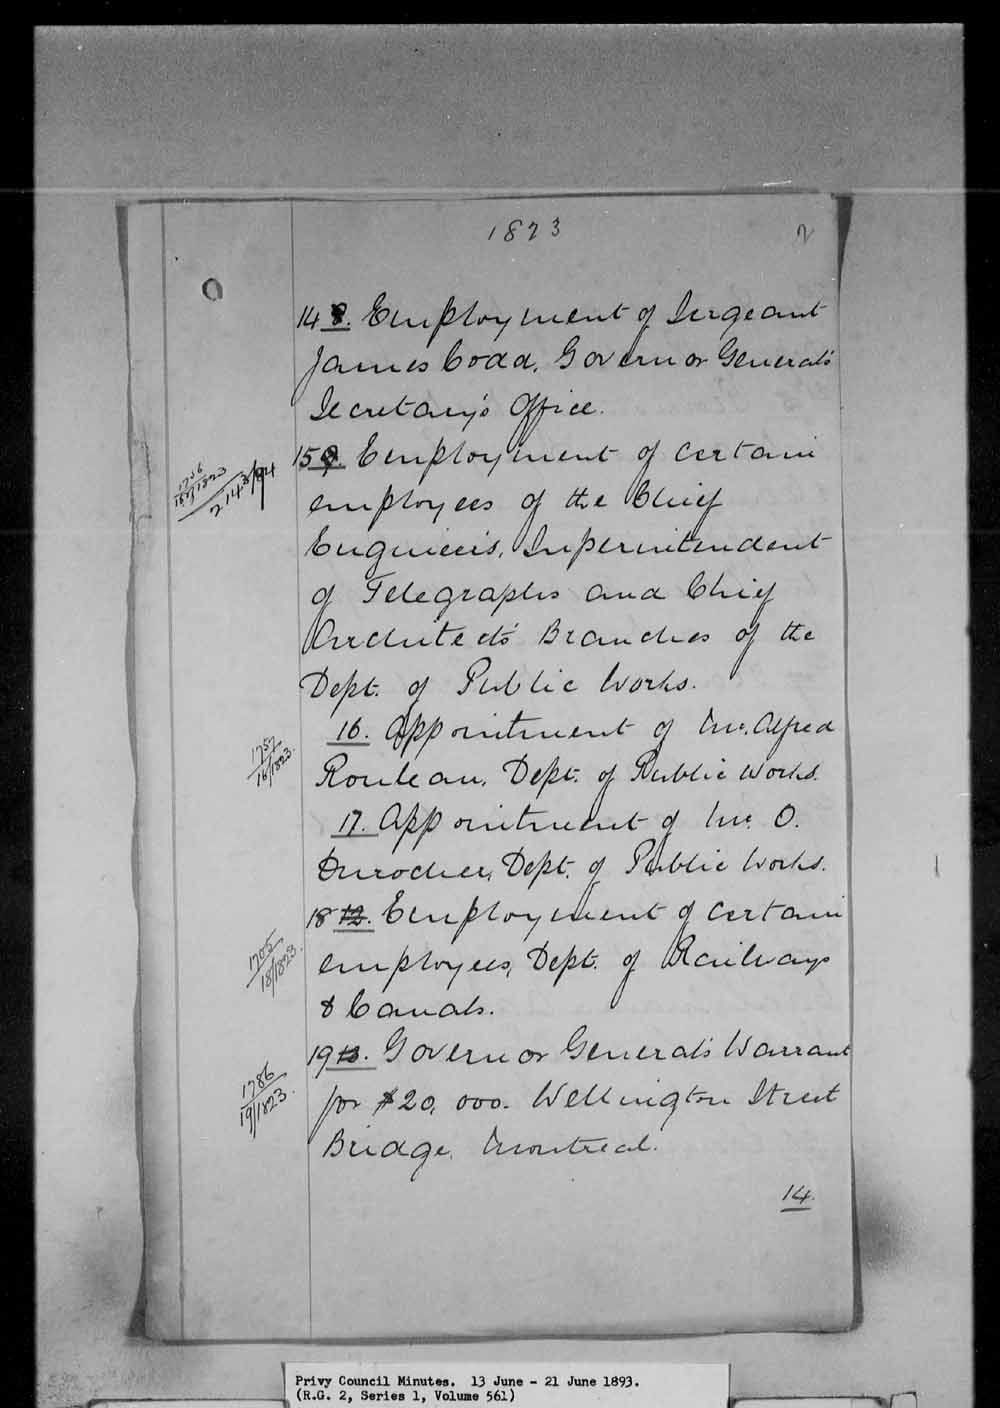 1823
2
14 8. Employment of Sergeant
James Codd, Governor General's
Secretary's Office.
1756
15/1823
2143/94
15 9. Employment of certain
employees of the Chief
Engineer's, Superintendent
of Telegraphs and Chief
Architect's Branches of the
Dept. of Public Works.
1757
16/1823.
16. Appointment of Mr. Alfred
Rouleau, Dept. of Public Works.
17. Appointment of Mr. O.
Durocher, Dept. of Public Works.
1785
18/1823.
18 12. Employment of certain
employees, Dept. of Railways
& Canals.
1786
19/1823.
19 13. Governor General's Warrant
for $20,000. Wellington Street
Bridge, Montreal.
14.
Privy Council Minutes. 13 June - 21 June 1893.
(R.G. 2, Series 1, Volume 561)